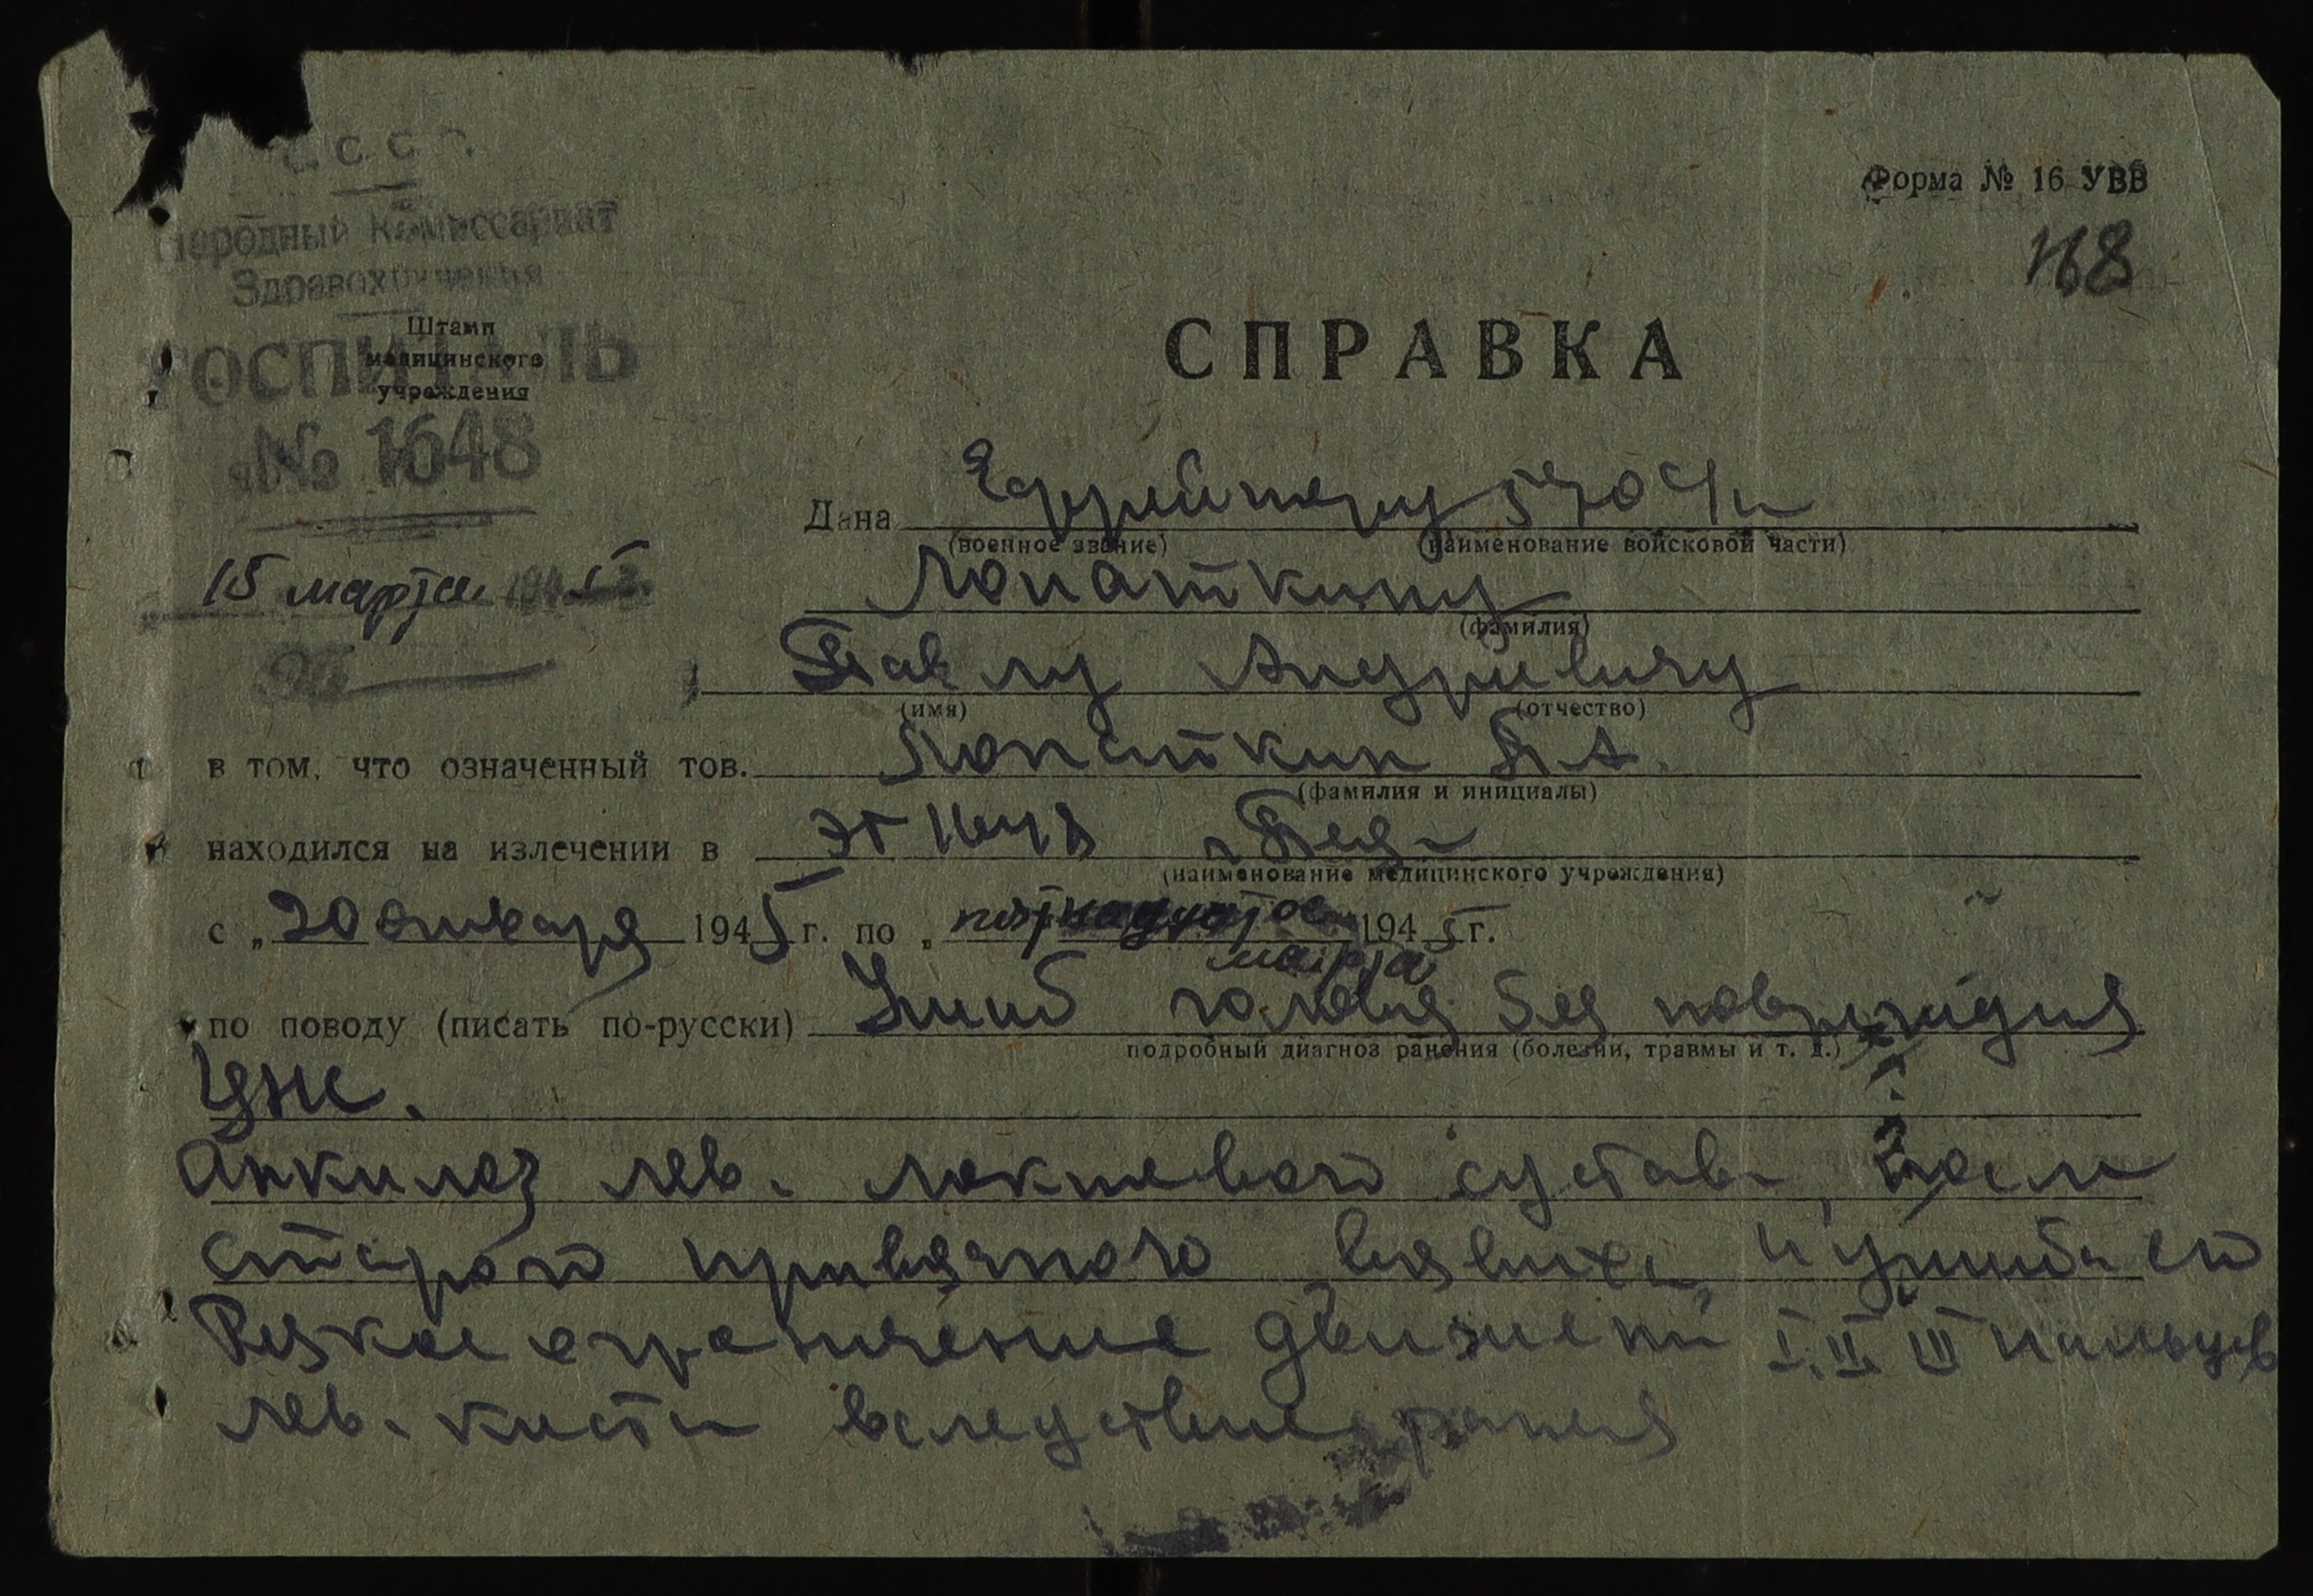 СССР
Народный Комиссариат
Здравохранения
Форма № 16 УВВ
168
Штамп
медицинского
учреждения
ГОСПИТАЛЬ
№ 1648
СПРАВКА
Дана Ефрейтору 570
(военное звание) (наименование войсковой части)
15 марта 1945
Лопаткину
(фамилия)
Павлу Андреевичу
(имя) (отчество)
в том, что означенный тов. Лопаткин П А.
(фамилия и инициалы)
находился на излечении в ЭГ 1648
(наименование медицинского учреждения)
с „20 января 1945 г. по „пятнадцатое 1945 г.
марта
по поводу (писать по-русски) Ушиб головы без
подробный диагноз ранения (болезни, травмы и т. д.)
Анкилоз лев. локтевого сустава, после
старого привычного вывиха и ушиба его
Резкое ограничение движений I, II, III пальцев
лев. кисти вследствие